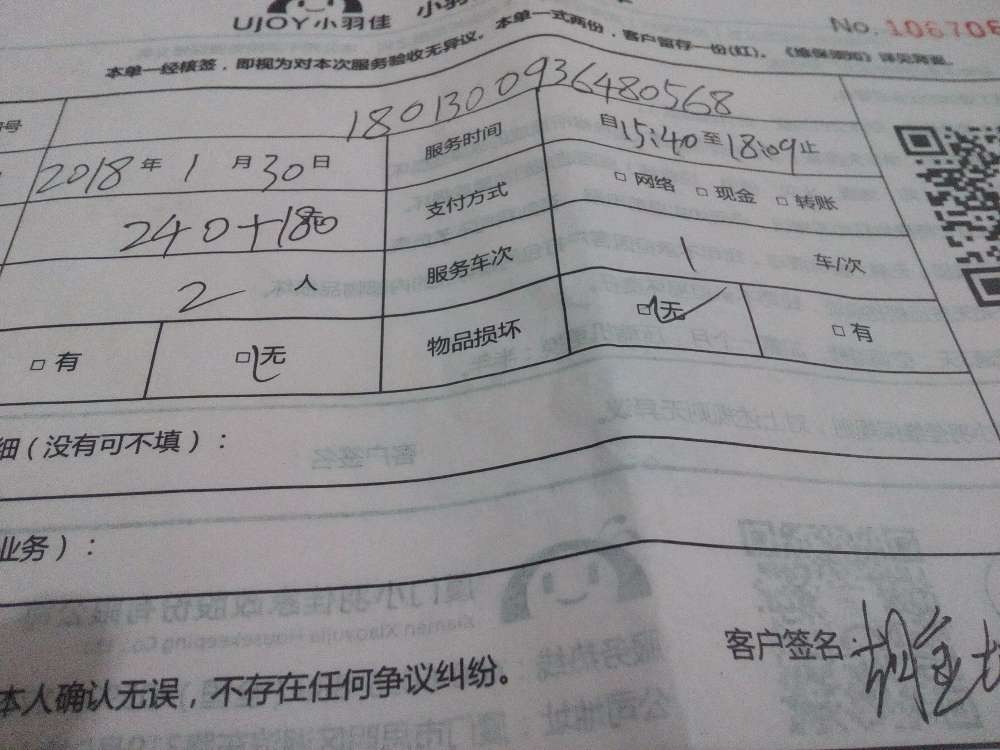 UJOY小羽佳
No. 106706
本单一经核签，即视为对本次服务验收无异议。本单一式两份，客户留存一份(红)。《维保须知》详见背面。
号 18013009364805​68
2018年1月30日 服务时间 自15:40至18:09止
240+180 支付方式 □网络 □现金 □转账
2人 服务车次 1 车/次
□有 □无 物品损坏 □无 □有
细（没有可不填）：
业务）：
客户签名：
本人确认无误，不存在任何争议纠纷。